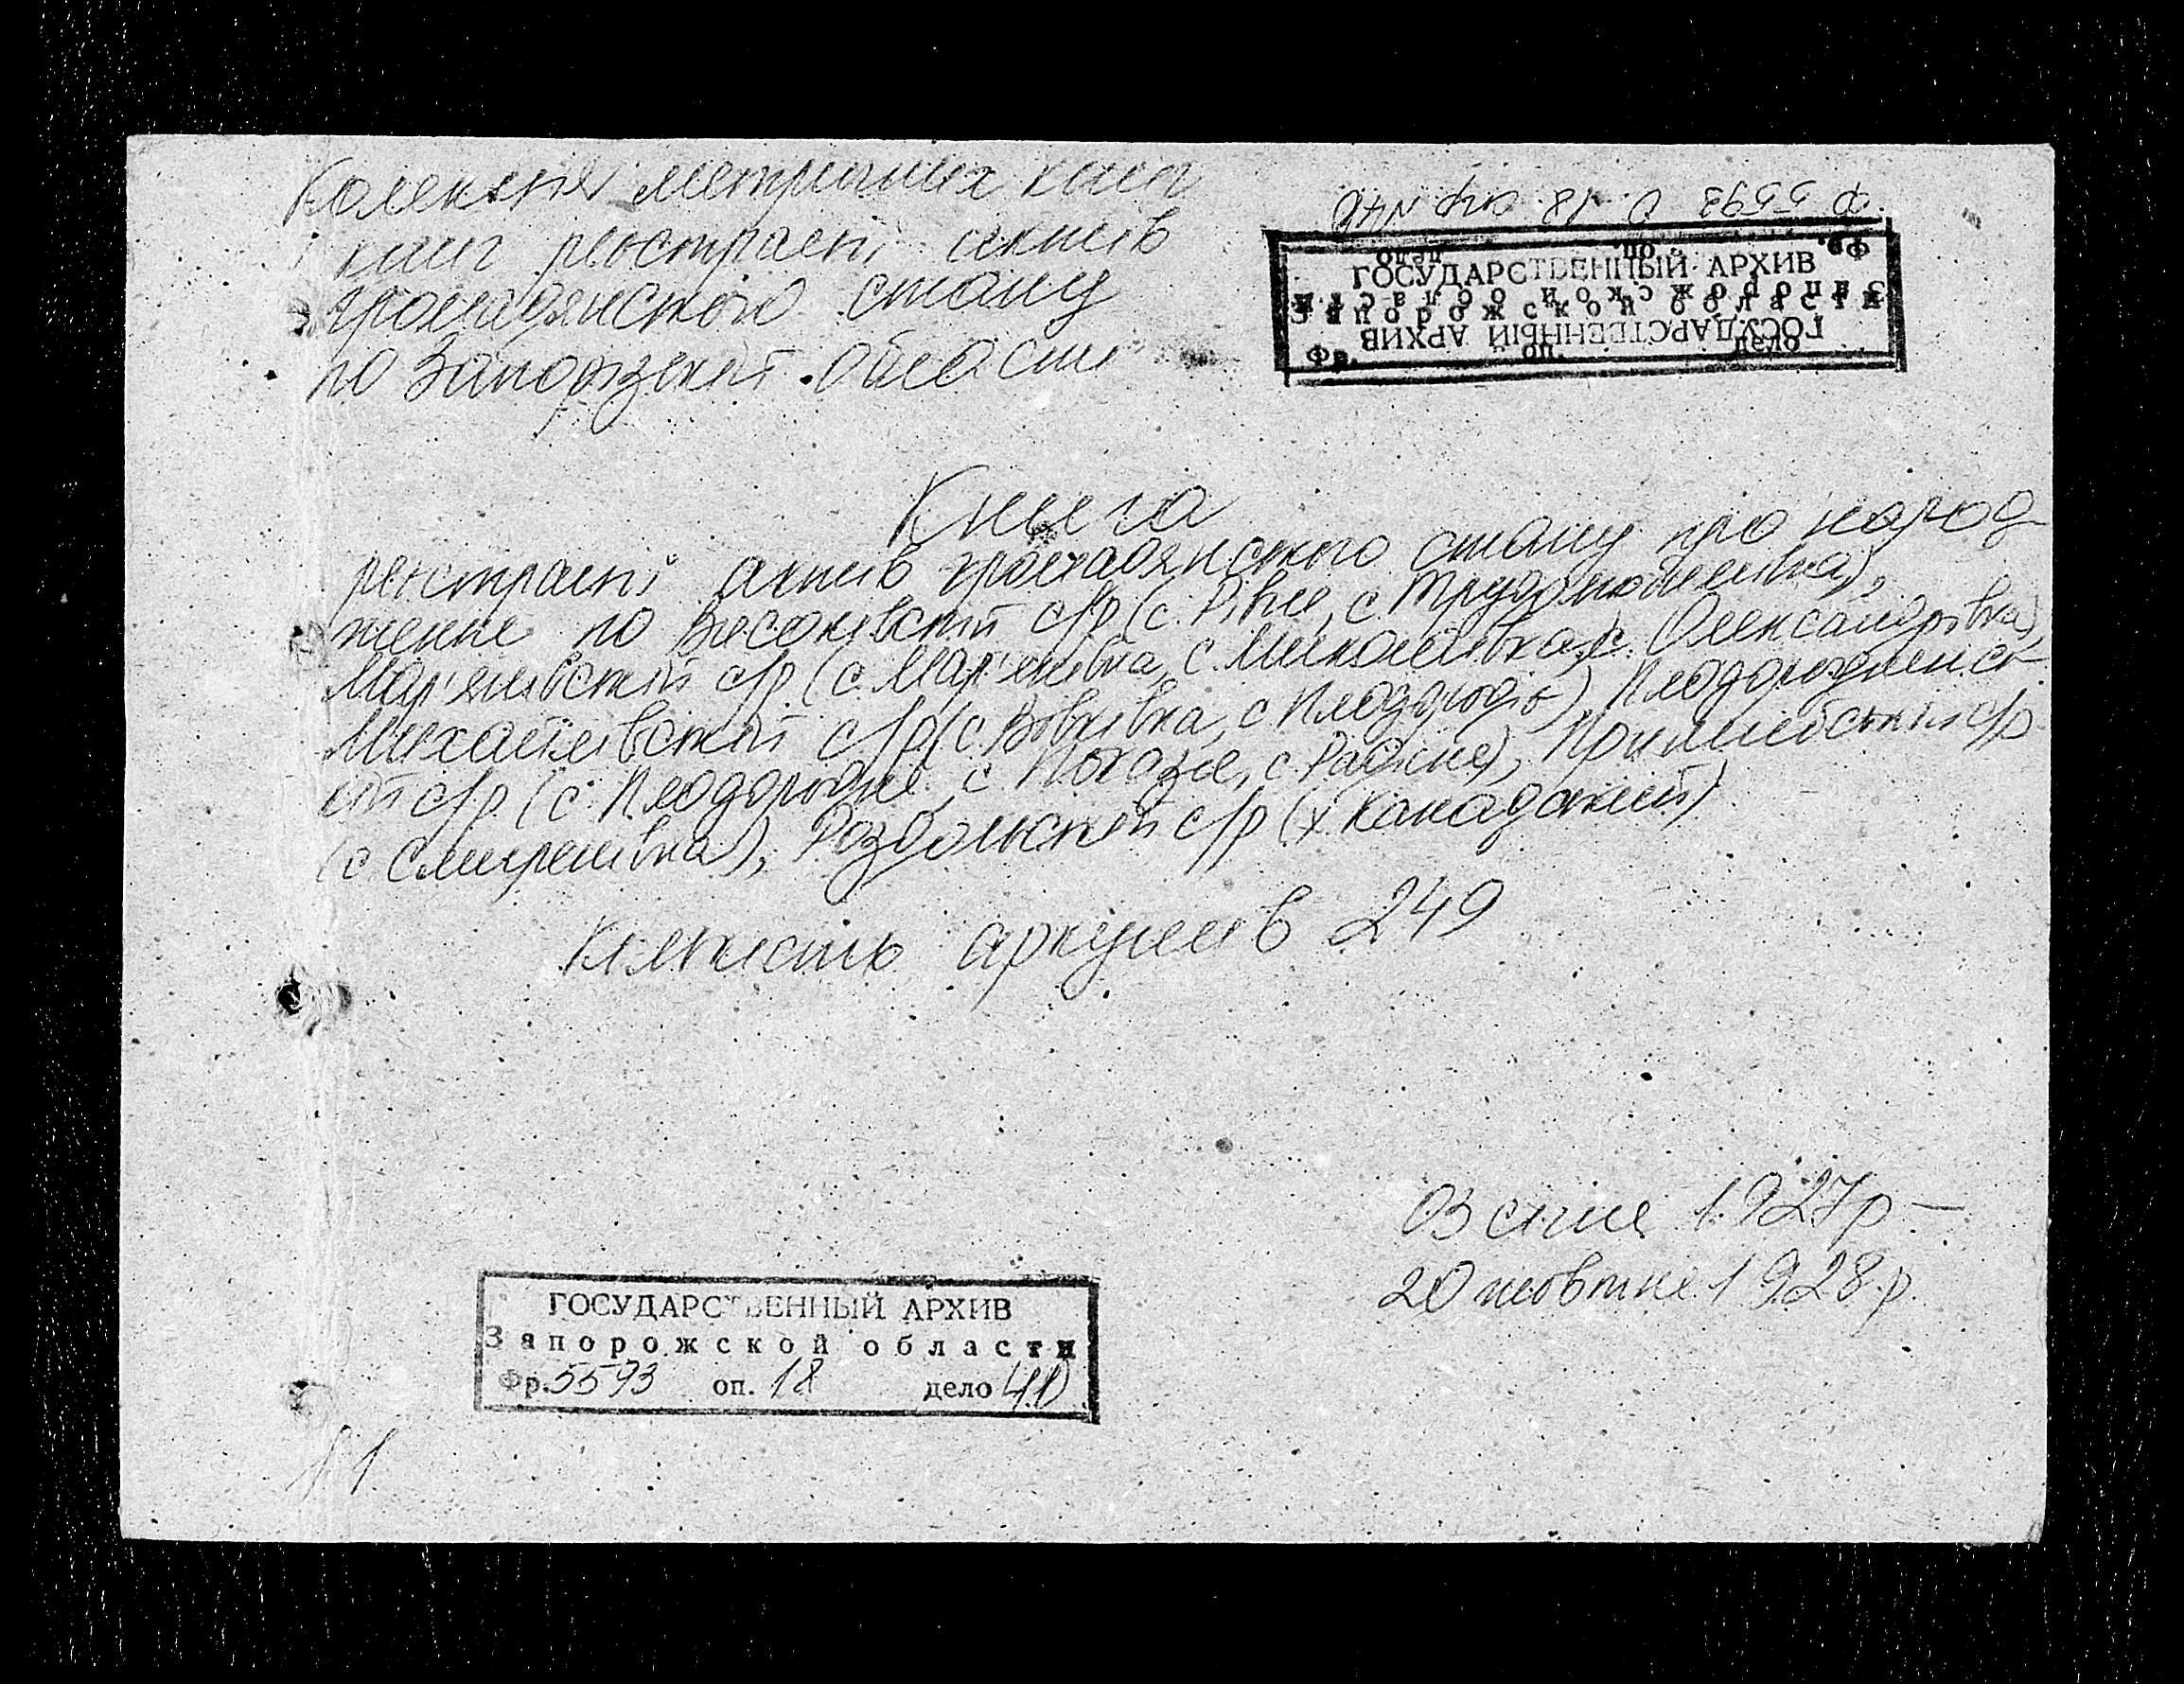 Колекция метричних книг
книг реєстрації актів
громадянського стану
по Запорізькій області
Ф 5593 О 18 спр N 40
ГОСУДАРСТВЕННЫЙ АРХИВ
Запорожской области
Фр. оп. дело
Книга
реєстрації актів громадянського стану про народ
ження по Високівській с/р (с. Рівне, с. Трудолюбимівка),
Мар'янівській с/р (с. Мар'янівка, с. Миколаївка, с. Олександрівка),
Михайлівській с/р (с. Вовківка, с. Плодородіє), Плодородненсь
кій с/р (с. Плодородне, с. Показне, с. Радісне), с/р
(с Смиренівка), Роздольській с/р (х Канадський)
Кількість аркушів 249
03 січня 1927р –
20 жовтня 1928 р.
ГОСУДАРСТВЕННЫЙ АРХИВ
Запорожской области
Фр. 5593 оп. 18 дело 40